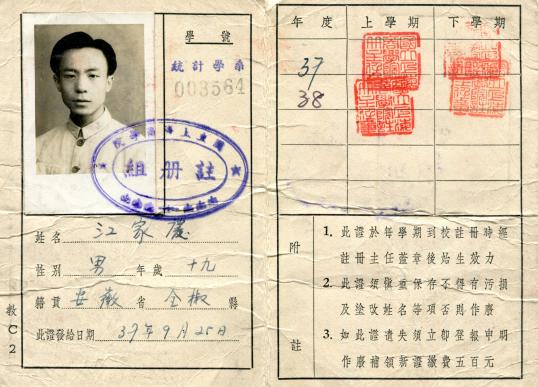 學號
統計學系
003564
國立上海商學院
註册組
姓名 江家
性別 男 年歲 十九
籍貫 安徽 省 全椒 縣
此證發給日期 37年9月25日
教C2
年度 上學期 下學期
37
38
附註
1. 此證於每學期到校註冊時經
註冊主任蓋章後始生效力
2. 此證須慎重保存不得有汚損
及塗改姓名等項否則作廢
3. 如此證遺失須立即登報申明
作廢補領新證繳費五百元